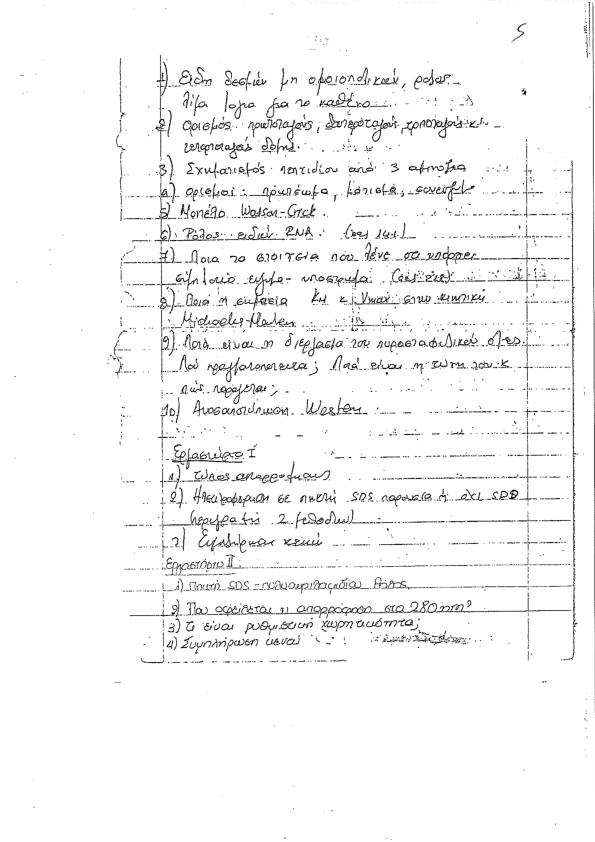 5
1) Είδη δεσμών μη ομοιοπολικών, ρόλος.
Λίγα λόγια για το καθένα.
2) Ορισμός πρωτοταγούς, δευτεροταγούς, τριτοταγούς κ'
τεταρτοταγούς δομής.
3) Σχηματισμός πεπτιδίου από 3 αμινοξέα
4) Ορισμοί:
5) Μοντέλο Watson-Crick.
6) Ρόλος ειδών RNA. (σελ 141)
7) Ποια τα στοιχεία που λένε ότι υπάρχει
σύμπλοκο ένζυμο-υποστρώμα
8) Ποιά η σημασία Km κ' Vmax στην κινητική
Michaelis-Menten
9) Ποιά είναι η διεργασία του πυροσταφυλικού οξέος.
Πού πραγματοποιείται; Ποιά είναι η τύχη του κ'
πώς παράγεται;
10) Ανοσοαποτύπωση Western
Εργαστήριο I
1) Τύπος απορρόφησης
2) Ηλεκτροφόρηση σε πηκτή SDS παρουσία ή όχι SDS
(περιγραφή 2 μεθόδων)
Εργαστήριο II
1) Πηκτή SDS-πολυακρυλαμιδίου
2) Που οφείλεται η απορρόφηση στα 280nm?
3) Τι είναι ρυθμιστική χωρητικότητα;
4) Συμπλήρωση κενά